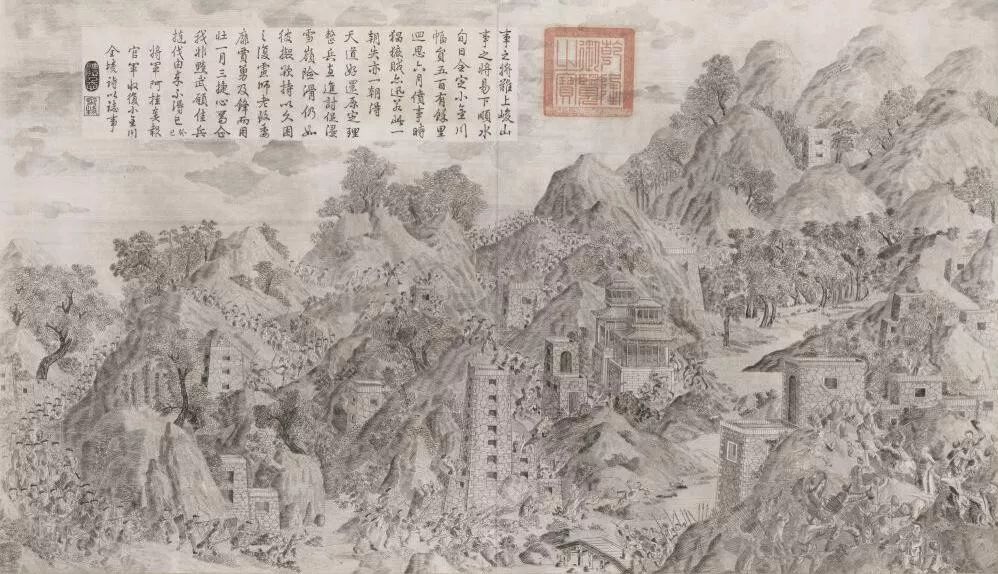 事之將難上峻山
事之將易下順水
旬日全定小金川
幅員五百有餘里
迴思六月僨事時
猖獗賊亦迅若一
朝失亦一朝得
天道好還原定理
整兵直進討促浸
雪嶺險滑仍如
彼擬欲持以久困
之復虞師老致委
靡賈勇及鋒而用
旺一月三捷心合
我非黷武願佳兵
撻伐由來不得已
將軍阿桂奏報
官軍收復小金川
全境詩以誌事
乾隆御覽之寶